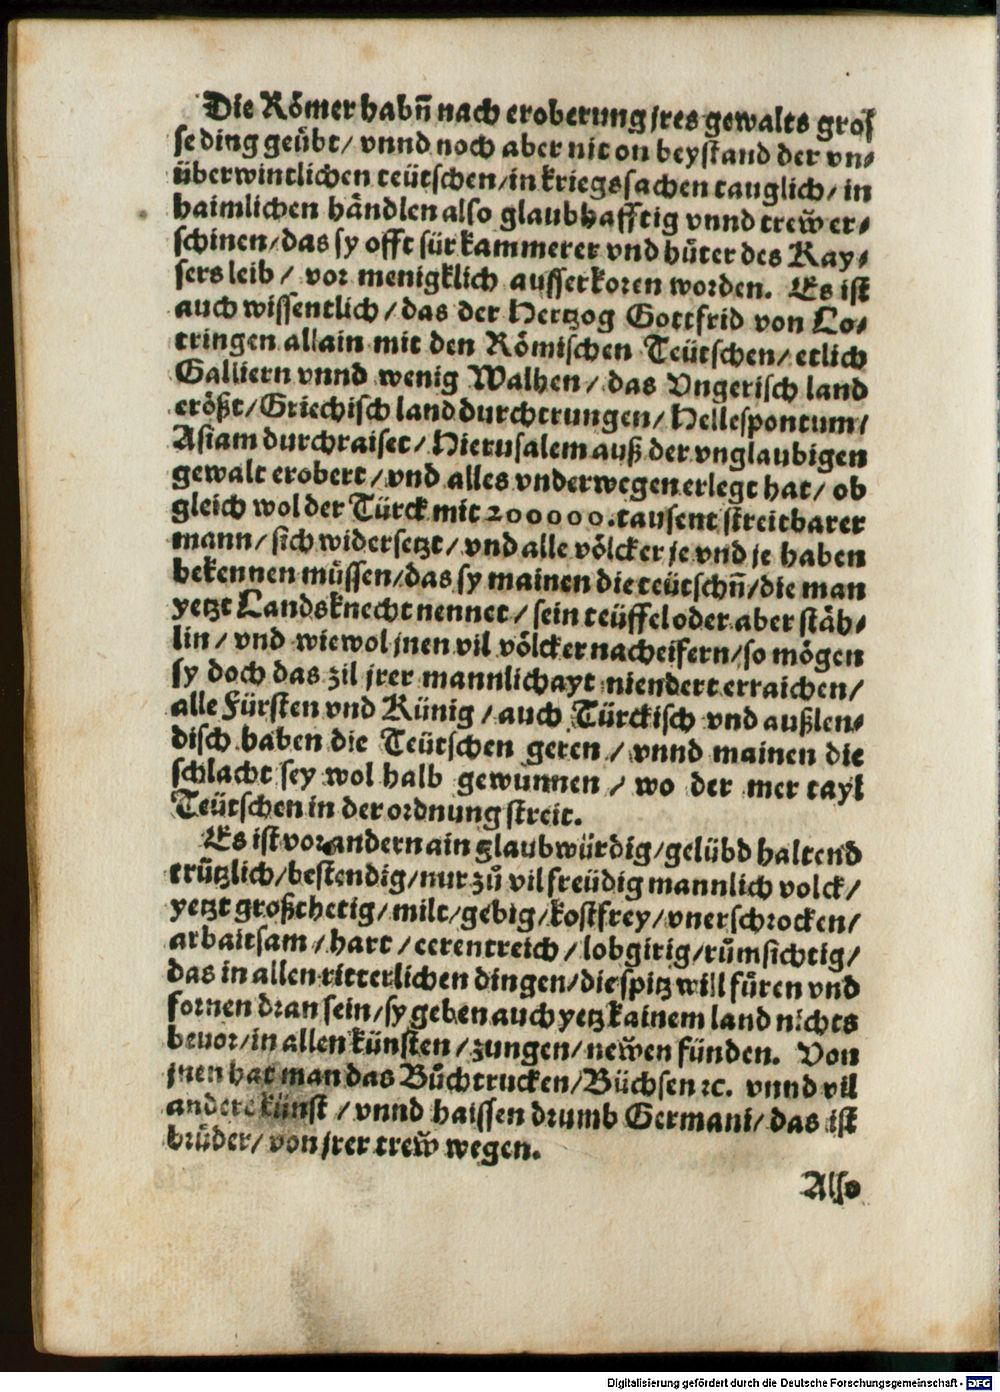 Die Römer habñ nach eroberung jres gewalts gros
se ding geübt/ vnnd noch aber nit on beystand der vn⸗
überwintlichen teütschen/in kriegssachen tauglich/ in
haimlichen händlen also glaubhafftig vnnd trew̃ er⸗
schinen/das sy offt für kammerer vnd hüter des Kay⸗
sers leib/ vor menigklich ausserkoren worden. Es ist
auch wissentlich/das der Hertzog Gottfrid von Lo⸗
tringen allain mit den Römischen Teütschen/etlich
Galliern vnnd wenig Walhen/das Vngerisch land
erößt/Griechisch land durchtrungen/Hellespontum/
Asiam durchraiset/Hierusalem auß der vnglaubigen
gewalt erobert/vnd alles vnderwegen erlegt hat/ ob
gleich wol der Türck mit 200000.tausent streitbarer
mann/sich widersetzt/vnd alle völcker je vnd je haben
bekennen müssen/das sy mainen die teütschñ/die man
yetzt Landsknecht nennet/sein teüffel oder aber stäh⸗
lin/vnd wiewol jnen vil völcker nacheifern/so mögen
sy doch das zil jrer mannlichayt niendert erraichen/
alle Fürsten vnd Künig/auch Türckisch vnd außlen⸗
disch haben die Teütschen geren/vnnd mainen die
schlacht sey wol halb gewunnen/wo der mer tayl
Teütschen in der ordnung streit.
Es ist vor andern ain glaubwürdig/gelübd haltend
trützlich/bestendig/nur zů vil freüdig mannlich volck/
yetzt großthetig/milt/gebig/kostfrey/vnerschrocken/
arbaitsam/hart/eerentreich/lobgirig/růmsichtig/
das in allen ritterlichen dingen/die spitz will füren vnd
fornen dran sein/sy geben auch yetz kainem land nichts
beuor/in allen künsten/zungen/new̃en fünden. Von
jnen hat man das Bůchtrucken/Büchsen ꝛc. vnnd vil
andere künst/vnnd haissen drumb Germani/das ist
brüder/von jrer trew̃ wegen.
Also
Digitalisierung gefördert durch die Deutsche Forschungsgemeinschaft - DFG